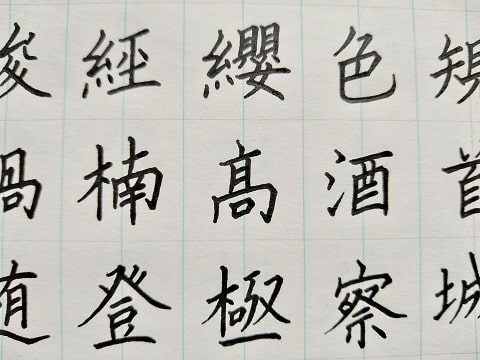 經纓色
楠髙酒首
登極察城